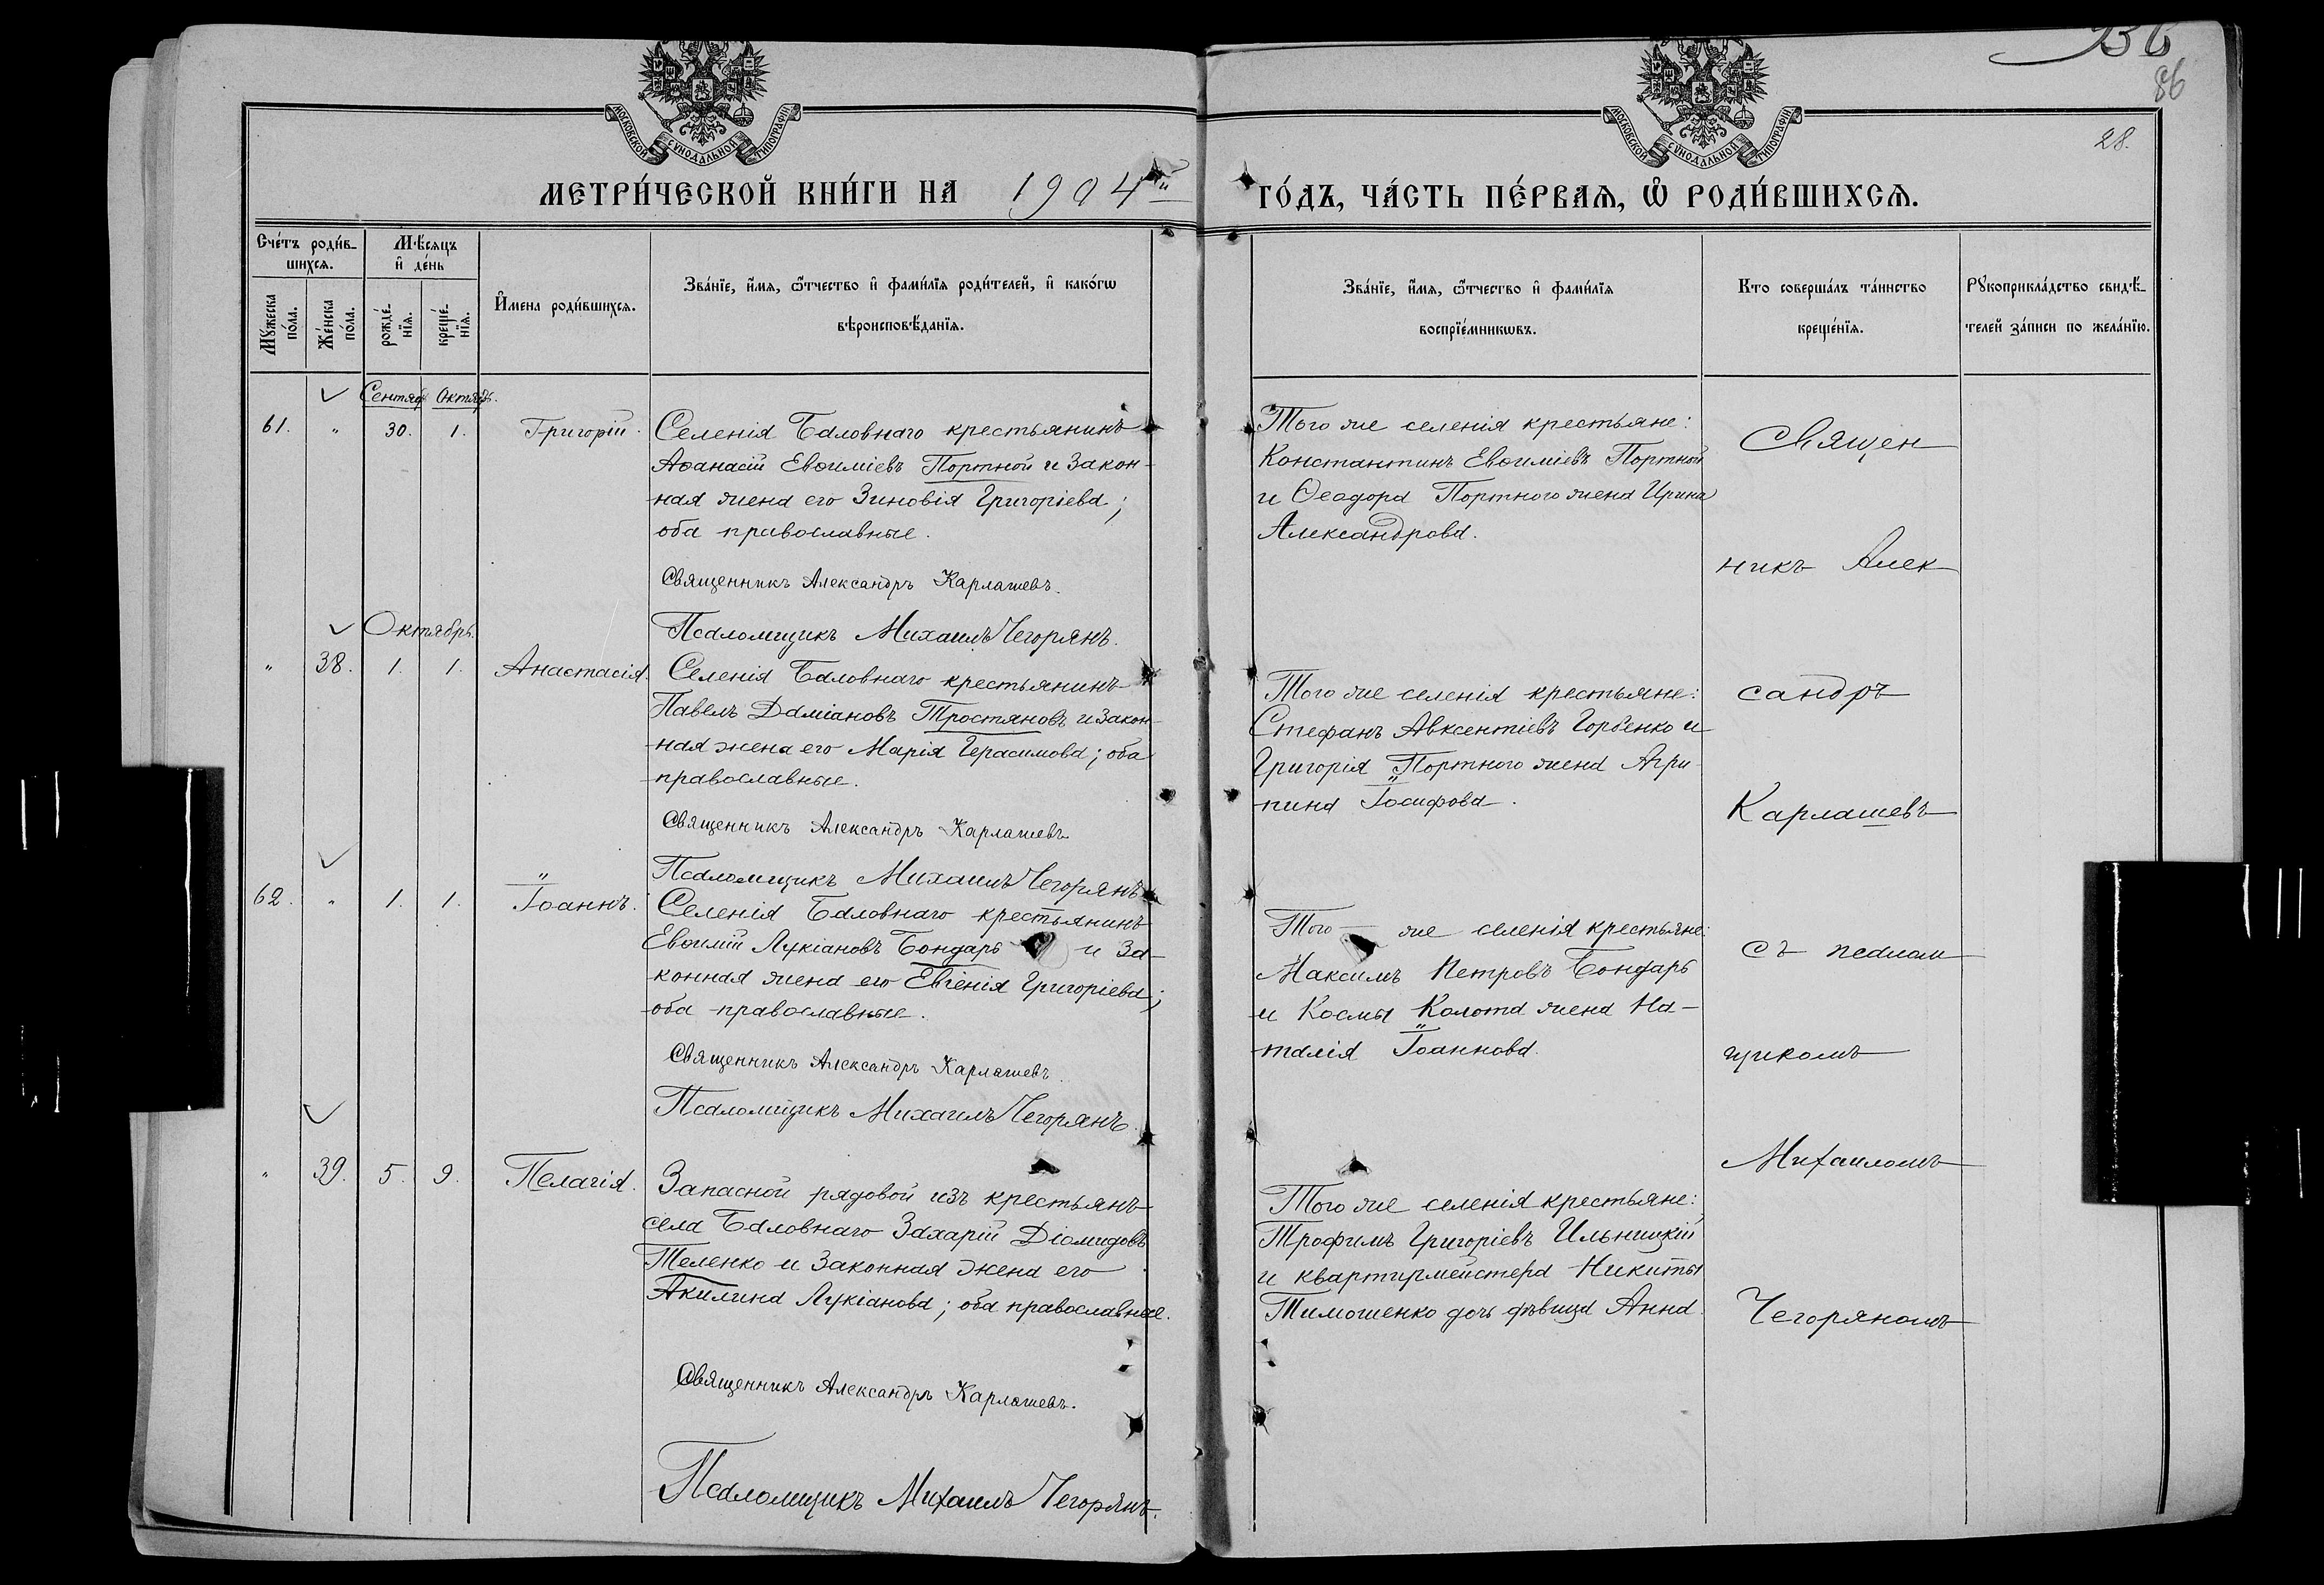 136
86
28.
МОСКОВСКОЙ СѴНОДАЛЬНОЙ ТИПОГРАФІИ
МОСКОВСКОЙ СѴНОДАЛЬНОЙ ТИПОГРАФІИ
МЕТРИ́ЧЕСКОЙ КНИ́ГИ НА 1904й ГО́ДЪ, ЧА́СТЬ ПЕ́РВАѦ, Ѡ҆ РОДИ́ВШИХСѦ.
Сче́тъ роди́в-
шихсѧ.
Мꙋ́жеска
по́ла.
Же́нска
по́ла.
Мѣ́сѧцъ
и҆ де́нь
рожде́-
нїѧ.
креще́-
нїѧ.
И҆мена роди́вшихсѧ.
Зва́нїе, и҆́мѧ, ѻ҆́тчество и҆ фами́лїѧ роди́телей, и҆ како́гѡ
вѣроисповѣ́данїѧ.
Зва́нїе, и҆́мѧ, ѻ҆́тчество и҆ фами́лїѧ
воспрїе́мникѡвъ.
Кто соверша́лъ та́инство
креще́нїѧ.
Рꙋкоприкла́дство свидѣ́-
телей за́писи по жела́нїю.
Сентяб. Октябр.
61. " 30. 1. Григорій.
Селенія Баловнаго крестьянинъ
Аѳанасій Евѳиміевъ Портной и закон-
ная жена его Зиновія Григоріева;
оба православные.
Священникъ Александръ Карлашевъ.
Псаломщикъ Михаилъ Чегорянъ.
Того же селенія крестьяне:
Константинъ Евѳиміевъ Портной
и Ѳеодора Портного жена Ирина
Александрова.
Октябрь.
" 38. 1. 1. Анастасія.
Селенія Баловнаго крестьянинъ
Павелъ Даміановъ Тростяновъ и закон-
ная жена его Марія Герасимова; оба
православные.
Священникъ Александръ Карлашевъ
Псаломщикъ Михаилъ Чегорянъ
Того же селенія крестьяне:
Стефанъ Авксентіевъ Горбенко и
Григорія Портного жена Агри-
пина Іосифова.
62. " 1. 1. Іоаннъ.
Селенія Баловнаго крестьянинъ
Евѳимій Лукіановъ Бондарь и за-
конная жена его Евгенія Григоріева;
оба православные.
Священникъ Александръ Карлашевъ.
Псаломщикъ Михаилъ Чегорянъ.
Того — же селенія крестьяне:
Максимъ Петровъ Бондарь
и Космы Колота жена На-
талія Іоаннова.
" 39. 5. 9. Пелагія.
Запасной рядовой изъ крестьянъ
села Баловнаго Захарій Діомидовъ
Теленко и законная жена его
Акилина Лукіанова; оба православные.
Священникъ Александръ Карлашевъ.
Псаломщикъ Михаилъ Чегорянъ.
Того же селенія крестьяне:
Трофимъ Григоріевъ Ильницкій
и квартирмейстера Никиты
Тимошенко дочь дѣвица Анна.
Священ
никъ Алек
сандръ
Карлашевъ
съ псалом
щикомъ
Михаиломъ
Чегоряномъ